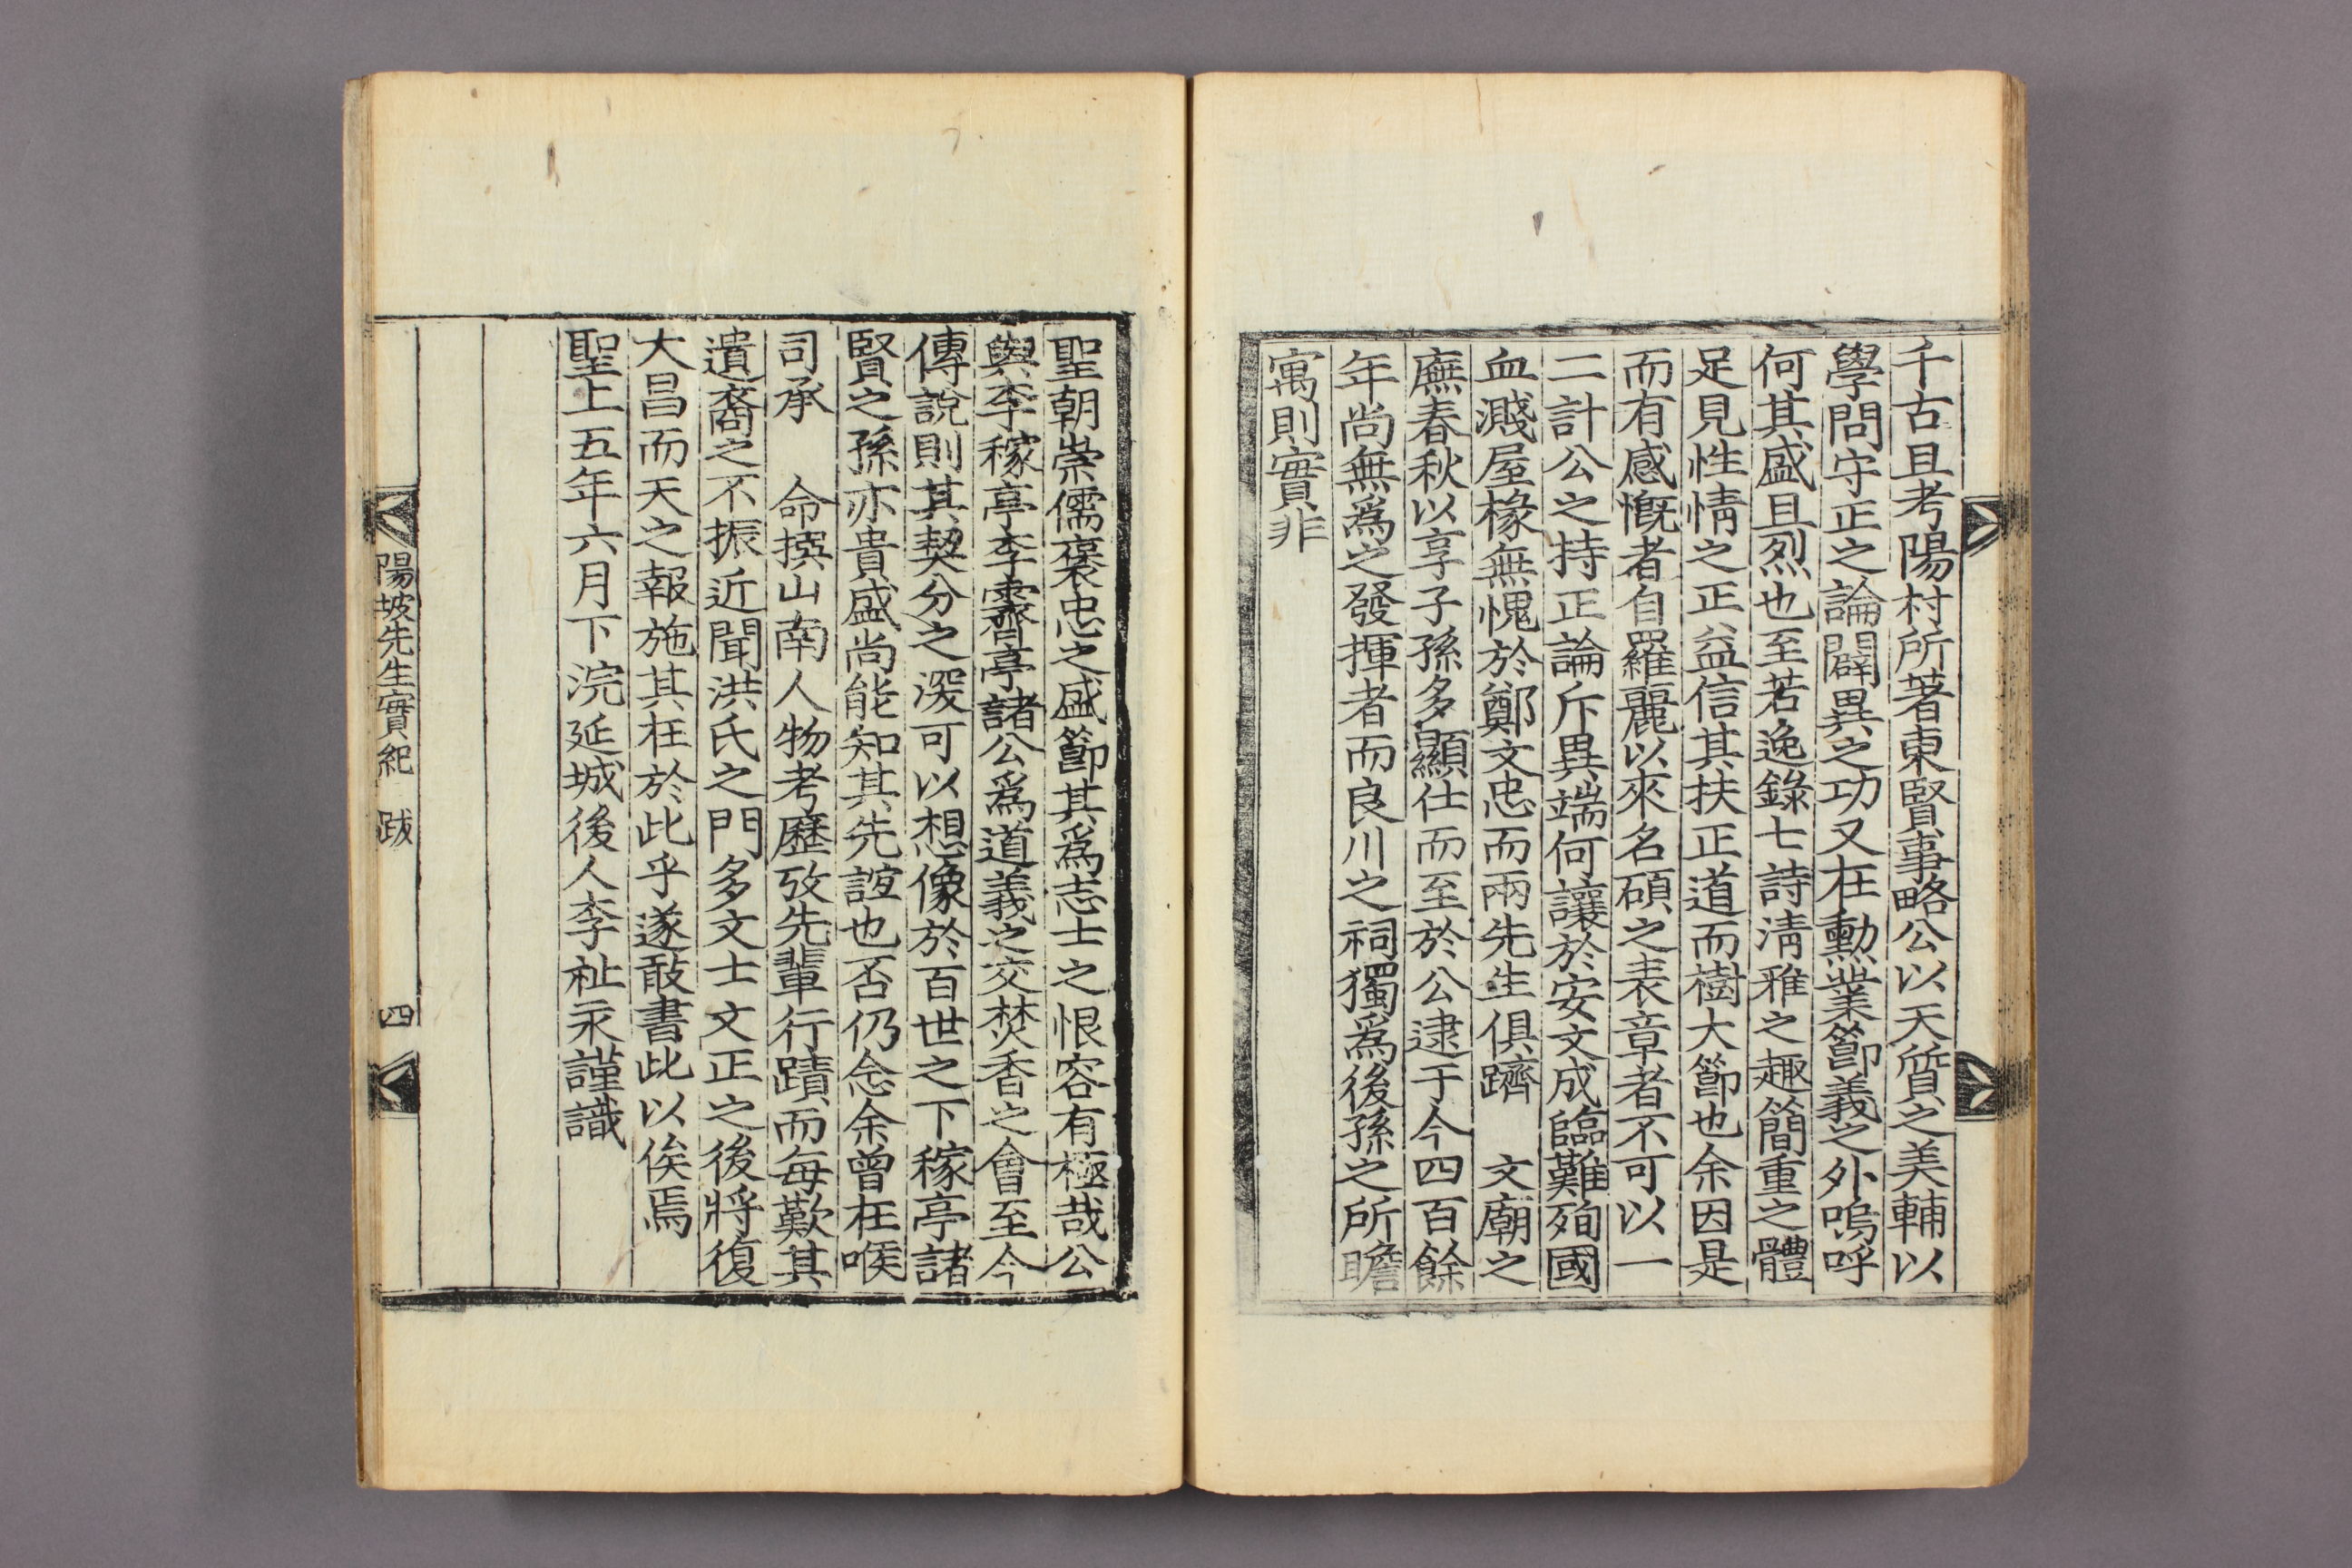 千古且考陽村所著東賢事略公以天質之美輔以
學問守正之論闢異之功又在勳業節義之外嗚呼
何其盛且烈也至若逸錄七詩清雅之趣簡重之體
足見性情之正益信其扶正道而樹大節也余因是
而有感慨者自羅麗以來名碩之表章者不可以一
二計公之持正論斥異端何讓於安文成臨難殉國
血濺屋椽無愧於鄭文忠而兩先生俱躋 文廟之
廡春秋以享子孫多顯仕而至於公逮于今四百餘
年尚無爲之發揮者而良川之祠獨爲後孫之所瞻
寓則實非
聖朝崇儒褒忠之盛節其爲志士之恨容有極哉公
與李稼亭李霽亭諸公爲道義之交焚香之會至今
傳說則其契分之深可以想像於百世之下稼亭諸
賢之孫亦貴盛尚能知其先誼也否仍念余曾在喉
司承 命撰山南人物考歷攷先輩行蹟而每歎其
遺裔之不振近聞洪氏之門多文士文正之後將復
大昌而天之報施其在於此乎遂敢書此以俟焉
聖上五年六月下浣延城後人李祉永謹識
陽坡先生實紀 跋 四